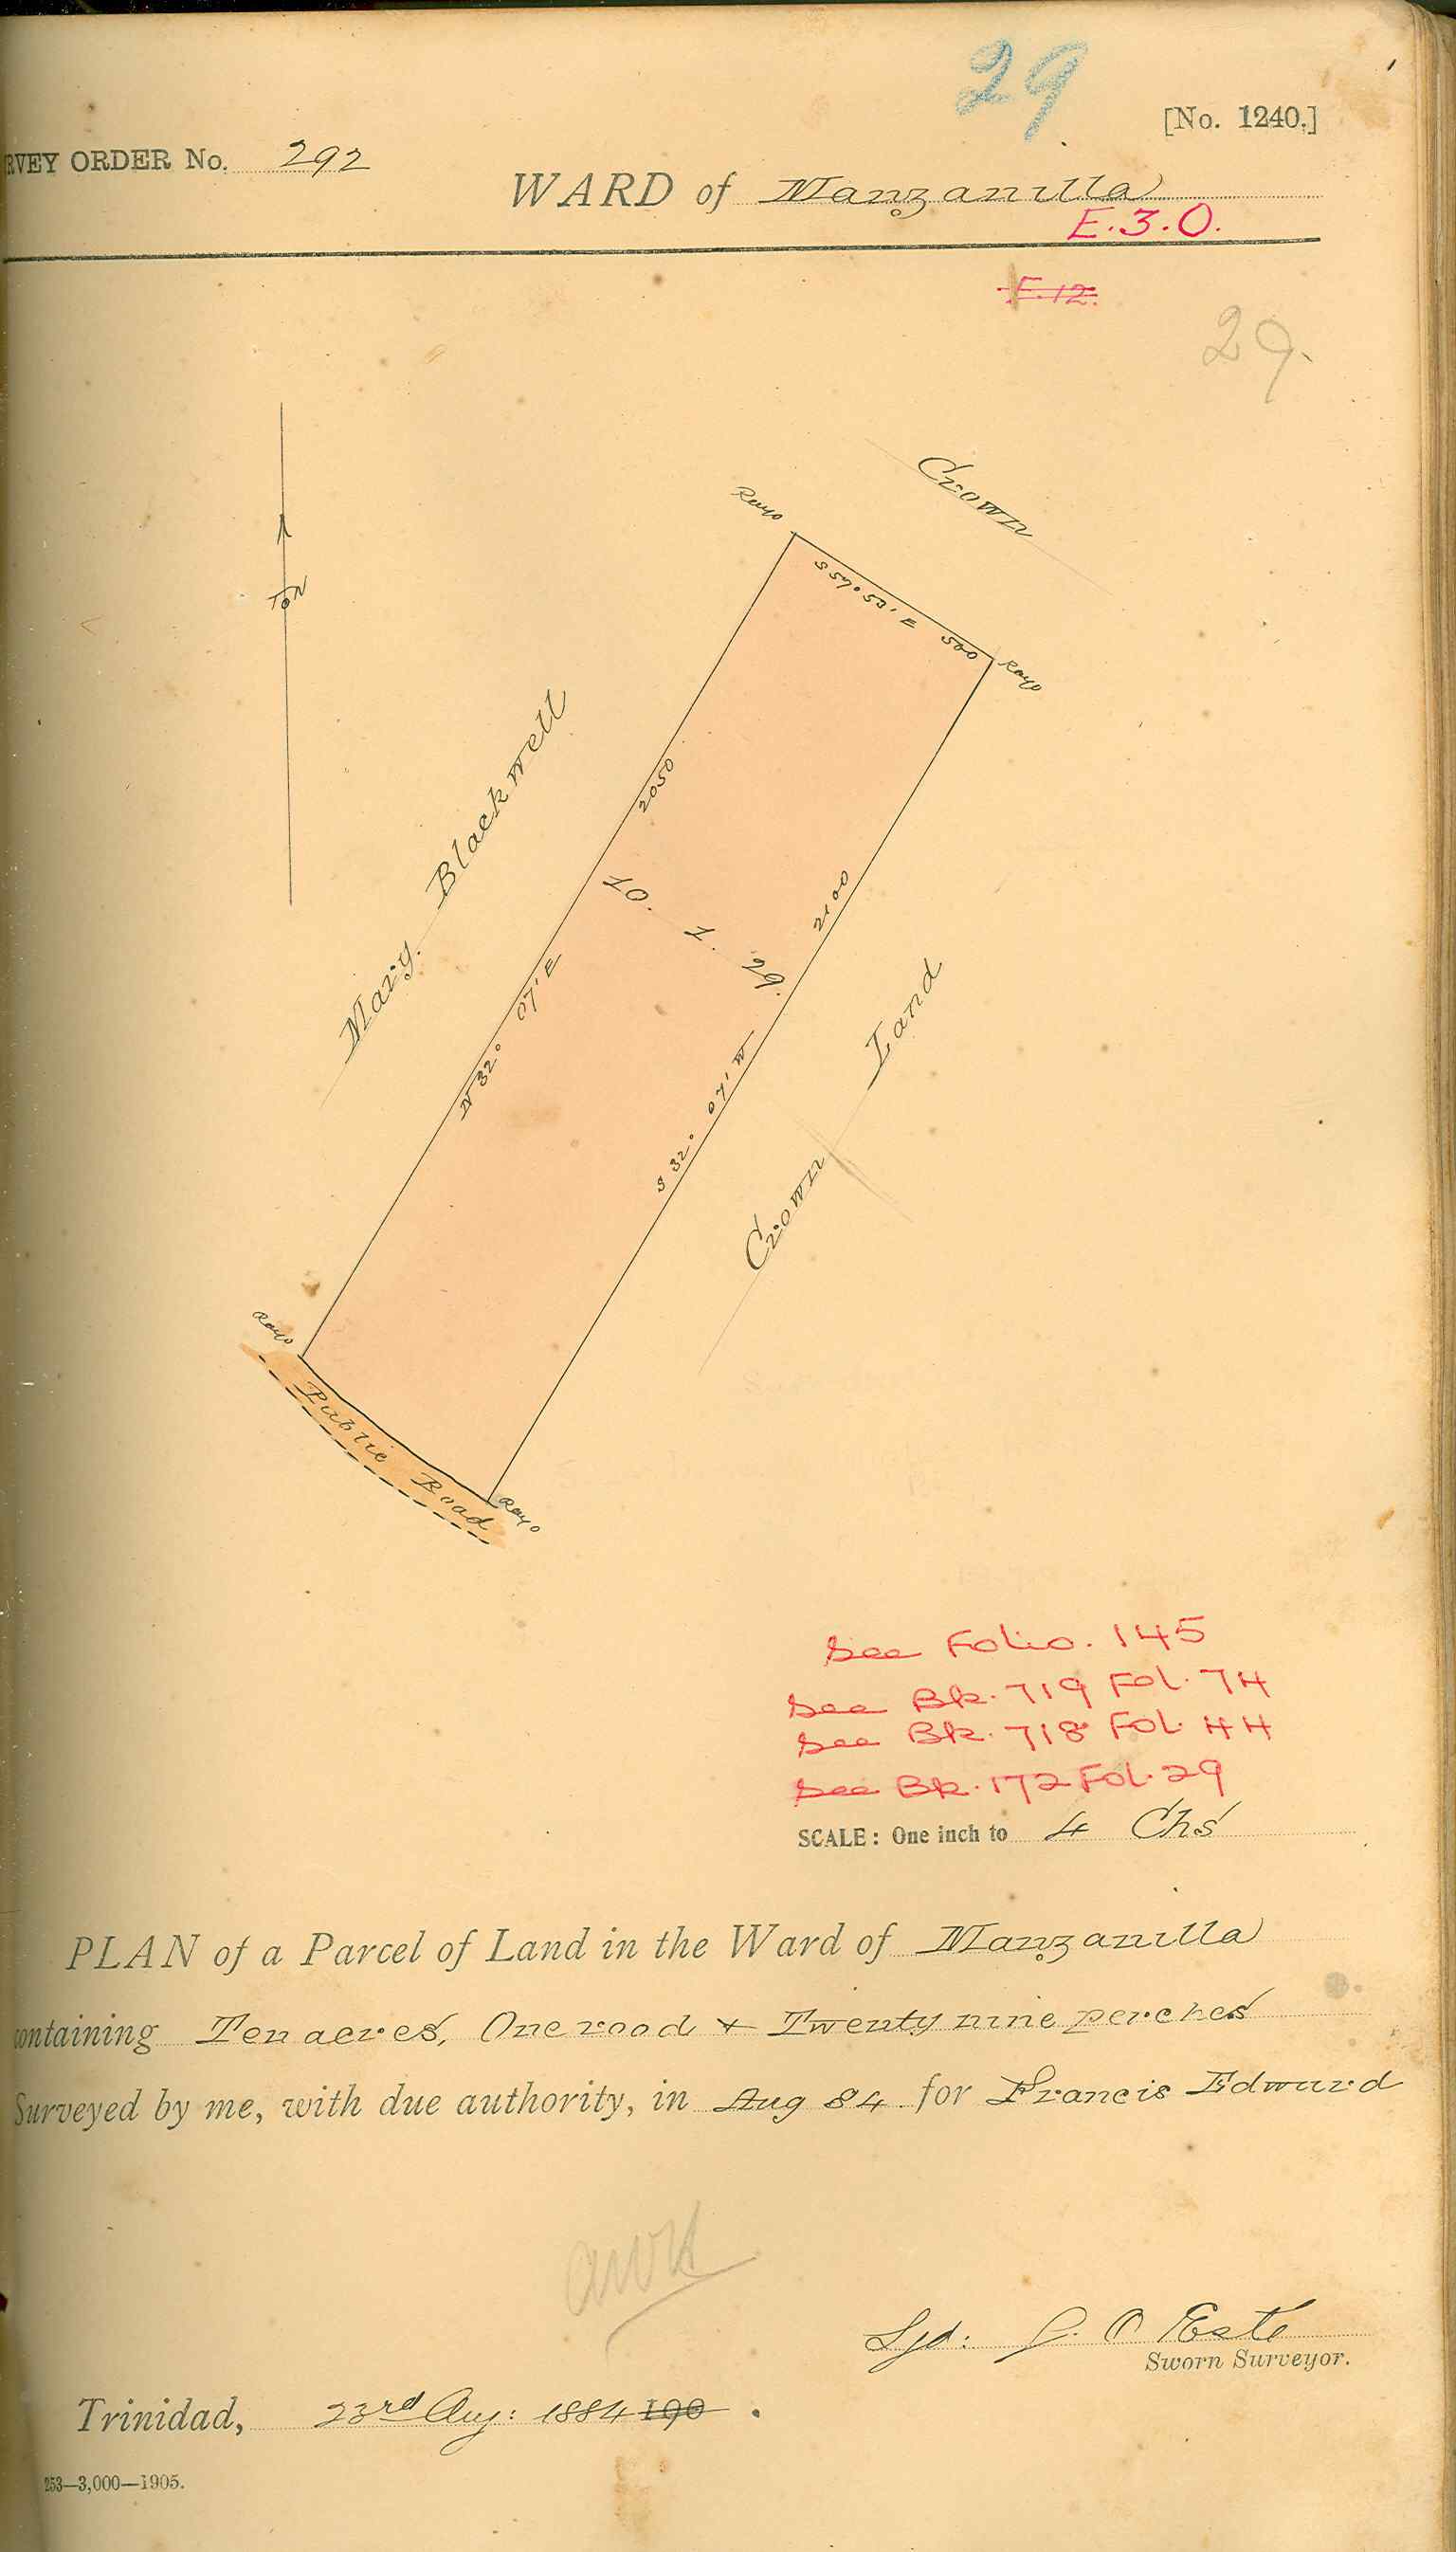 29
[No. 1240.]
RVEY ORDER No. 292
WARD of Manzanilla
E.3.O.
F.12.
29.
Crown
Royo
S 57° 53' E 500
Royo
T N
Mary Blackwell
2050
N 32° 07' E
10. 1. 29.
2100
S 32° 07' W
Crown Land
Royo
Public Road
Royo
See Folio. 145
See Bk. 719 Fol. 74
See Bk. 718 Fol. 44
See Bk. 172 Fol. 29
SCALE: One inch to 4 Chs
PLAN of a Parcel of Land in the Ward of Manzanilla
ontaining Ten acres, One rood & Twenty nine perches
Surveyed by me, with due authority, in Aug 84 for Francis Edward
Sgd: O Esté
Sworn Surveyor.
Trinidad, 23rd Aug: 1884 190 .
253—3,000—1905.